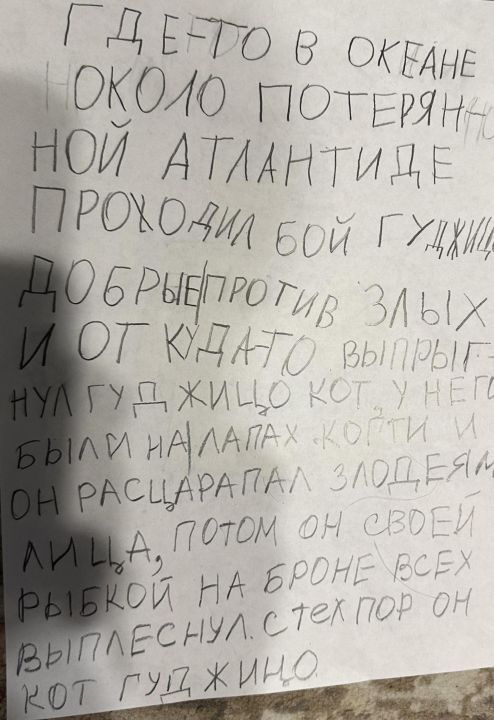 ГДЕ-ТО В ОКЕАНЕ
ОКОЛО ПОТЕРЯН
НОЙ АТЛАНТИДЕ
ПРОХОДИЛ БОЙ ГУДЖИЦ
ДОБРЫЕ ПРОТИВ ЗЛЫХ
И ОТ КУДА-ТО ВЫПРЫГ-
НУЛ ГУДЖИЦО КОТ У НЕГО
БЫЛИ НА ЛАПАХ КОГТИ И
ОН РАСЦАРАПАЛ ЗЛОДЕЯМ
ЛИЦА, ПОТОМ ОН СВОЕЙ
РЫБКОЙ НА БРОНЕ ВСЕХ
ВЫПЛЕСНУЛ. С ТЕХ ПОР ОН
КОТ ГУДЖИЦО